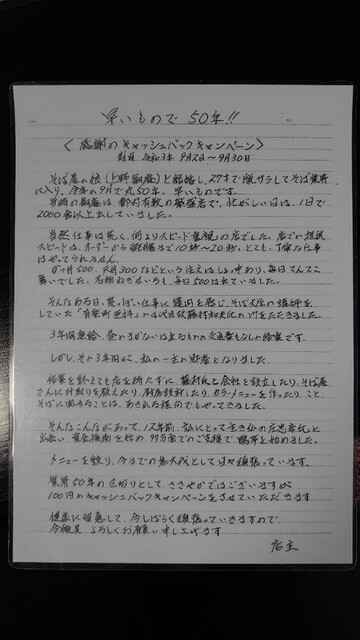 早いもので 50年!!
〈 感謝のキャッシュバックキャンペーン 〉
期間 令和3年 9月2日〜9月30日
そば屋の娘（上野藪蕎麦）と結婚し、27才で脱サラしてそば業界
に入り、今年の9月で丸50年。早いものです。
当時の藪蕎麦は都内有数の繁盛店で、忙しい日は、1日で
2000食以上出していました。
当然仕事は荒く、何よりスピード重視の店でした。店での提供
スピードは、オーダーから 10秒〜20秒。とても、丁寧な仕事
はやってられません。
500、大 300などという注文はしょっちゅうあり、毎日てんてこ
舞いでした。 でも 毎日500は出ていました。
そんなある日、荒っぽい仕事に疑問を感じ、そば大学の講師をし
ていた「有楽町更科」の4代目故藤村和夫氏の門をたたきました。
3年間無給、昼のまかないはあるものの交通費もなしの修業です。
しかし、その3年間が、私の一生の財産となりました。
修業を終えても店を持たずに、藤村氏と会社を設立したり、そば屋
さんに手取りを教えたり、厨房設計したり、カラーメニューを作ったり、こと
そばに関わることは、あきれる程何でもやってきました。
そんなこんながあって、12年前、私にとって生き仏の庄忠幸氏と
出会い、資金援助を始め、多方面でのご支援で 開業を始めました。
メニューを絞り、今までの集大成として日々頑張っています。
業界50年の区切りとして、ささやかではございますが
100円のキャッシュバックキャンペーンをさせていただきます
健康に留意して、今しばらく頑張っていきますので、
今後共、よろしくお願い申し上げます
店主